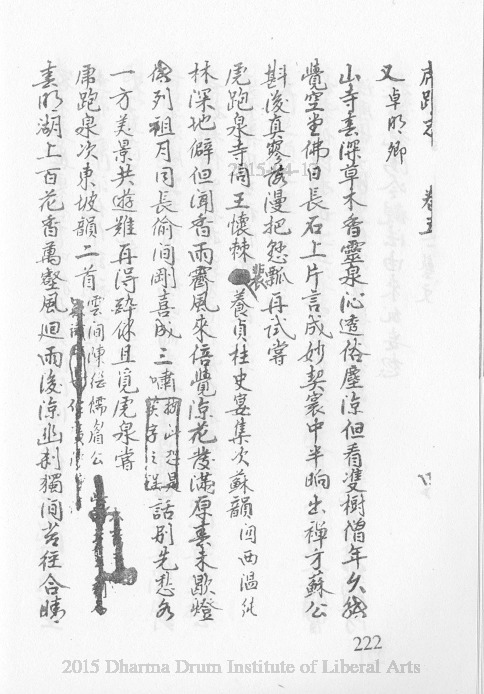 虎跑志 卷五
又 卓明卿
山寺春深草木香靈泉沁透俗塵涼但看雙樹僧年久能
覺空堂佛日長石上片言成妙契寰中半晌出禪方蘇公
斟後真寥落漫把愁瓢再試嘗
虎跑泉寺同王懷棘裴養貞柱史宴集次蘇韻 關西溫純
林深地僻但聞香雨霽風來倍覺涼花發滿原春未歇燈
列祖月同長偷間剛喜成三嘯話別先愁各
一方美景共遊難再得醉餘且覓虎泉嘗
虎跑泉次東坡韻二首 雲間陳繼儒眉公
春明湖上百花香萬壑風迴雨後涼 獨 往合晴
222
2015-04-1
2015 Dharma Drum Institute of Liberal Arts